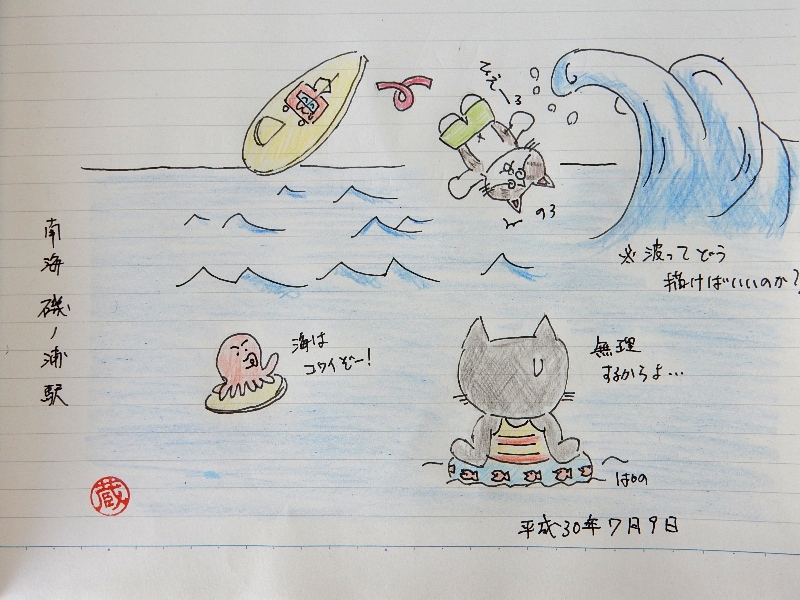 南海 磯ノ浦駅
※波ってどう
描けばいいのか?
海は
コワイぞー!
無理
するからよ…
はるの
平成30年7月9日
蔵